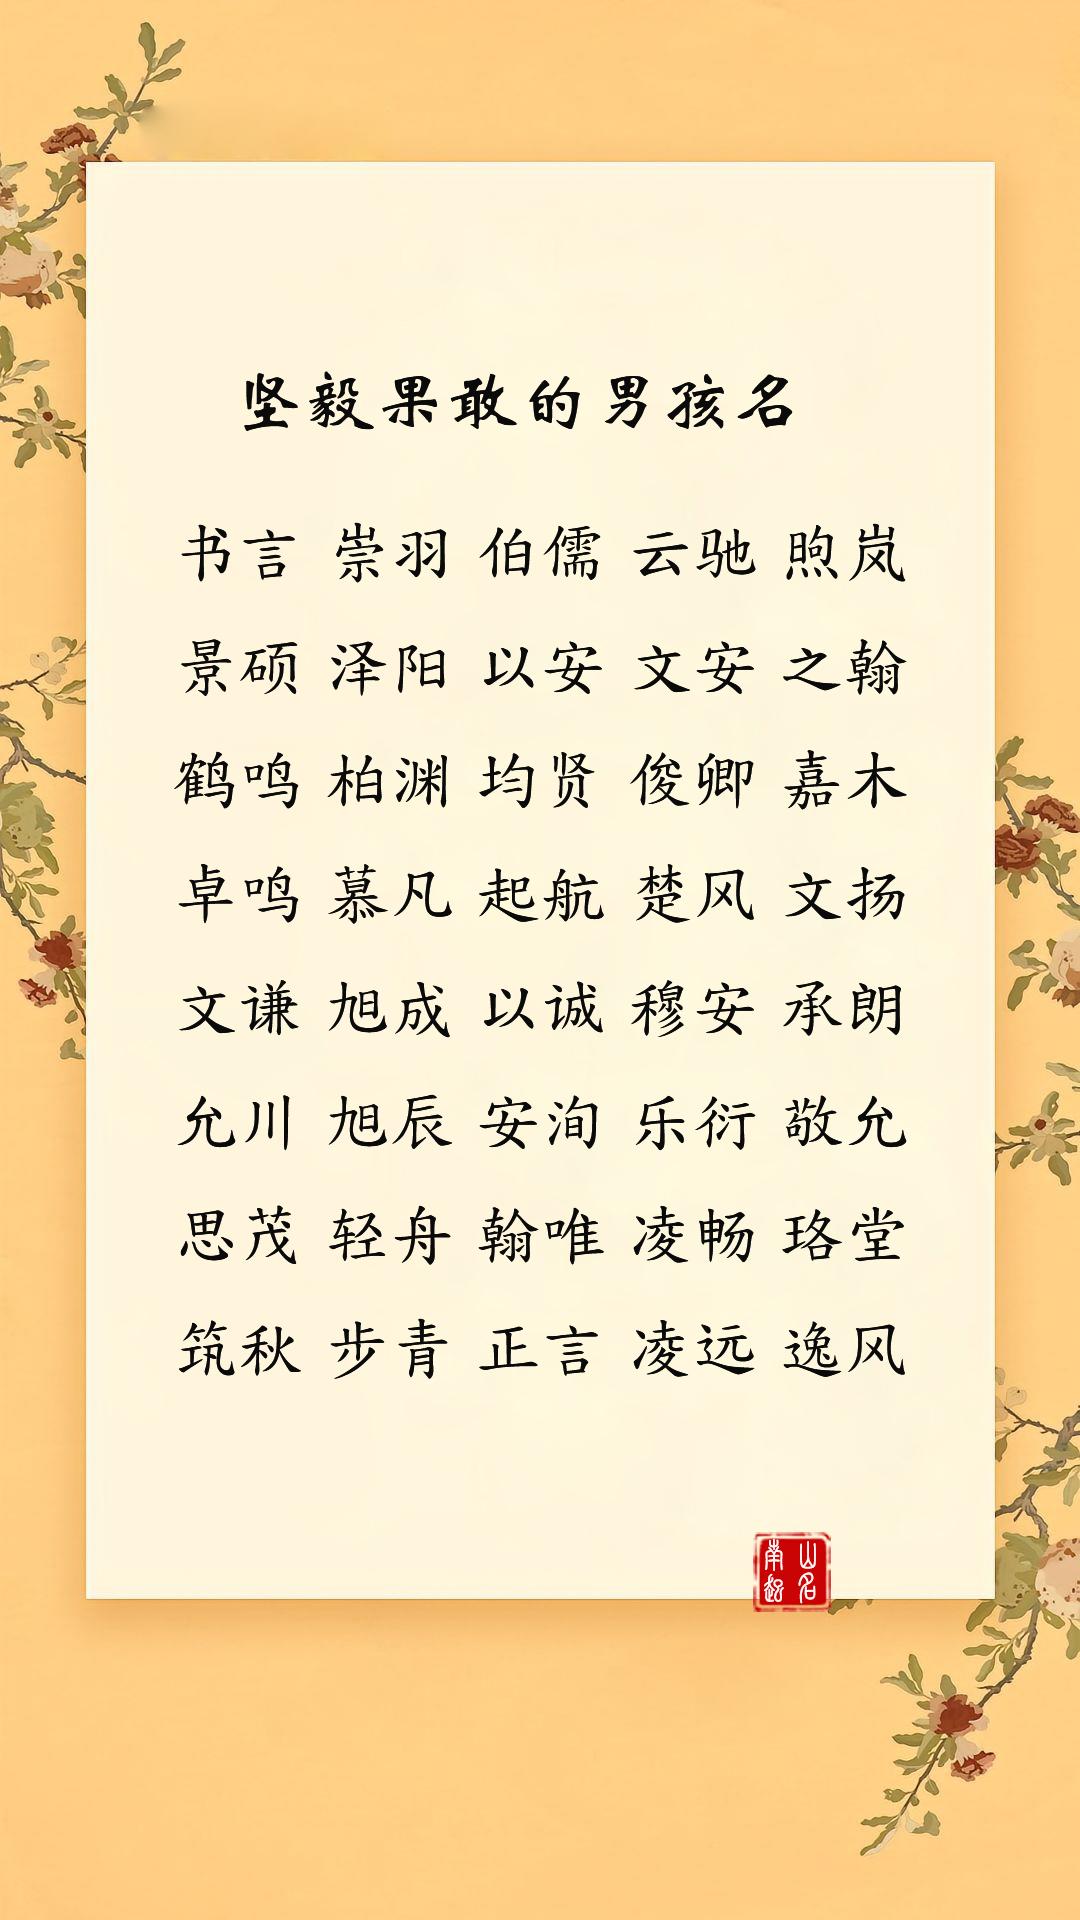 坚毅果敢的男孩名
书言 崇羽 伯儒 云驰 煦岚
景硕 泽阳 以安 文安 之翰
鹤鸣 柏渊 均贤 俊卿 嘉木
卓鸣 慕凡 起航 楚风 文扬
文谦 旭成 以诚 穆安 承朗
允川 旭辰 安洵 乐衍 敬允
思茂 轻舟 翰唯 凌畅 珞堂
筑秋 步青 正言 凌远 逸风
山名
南起